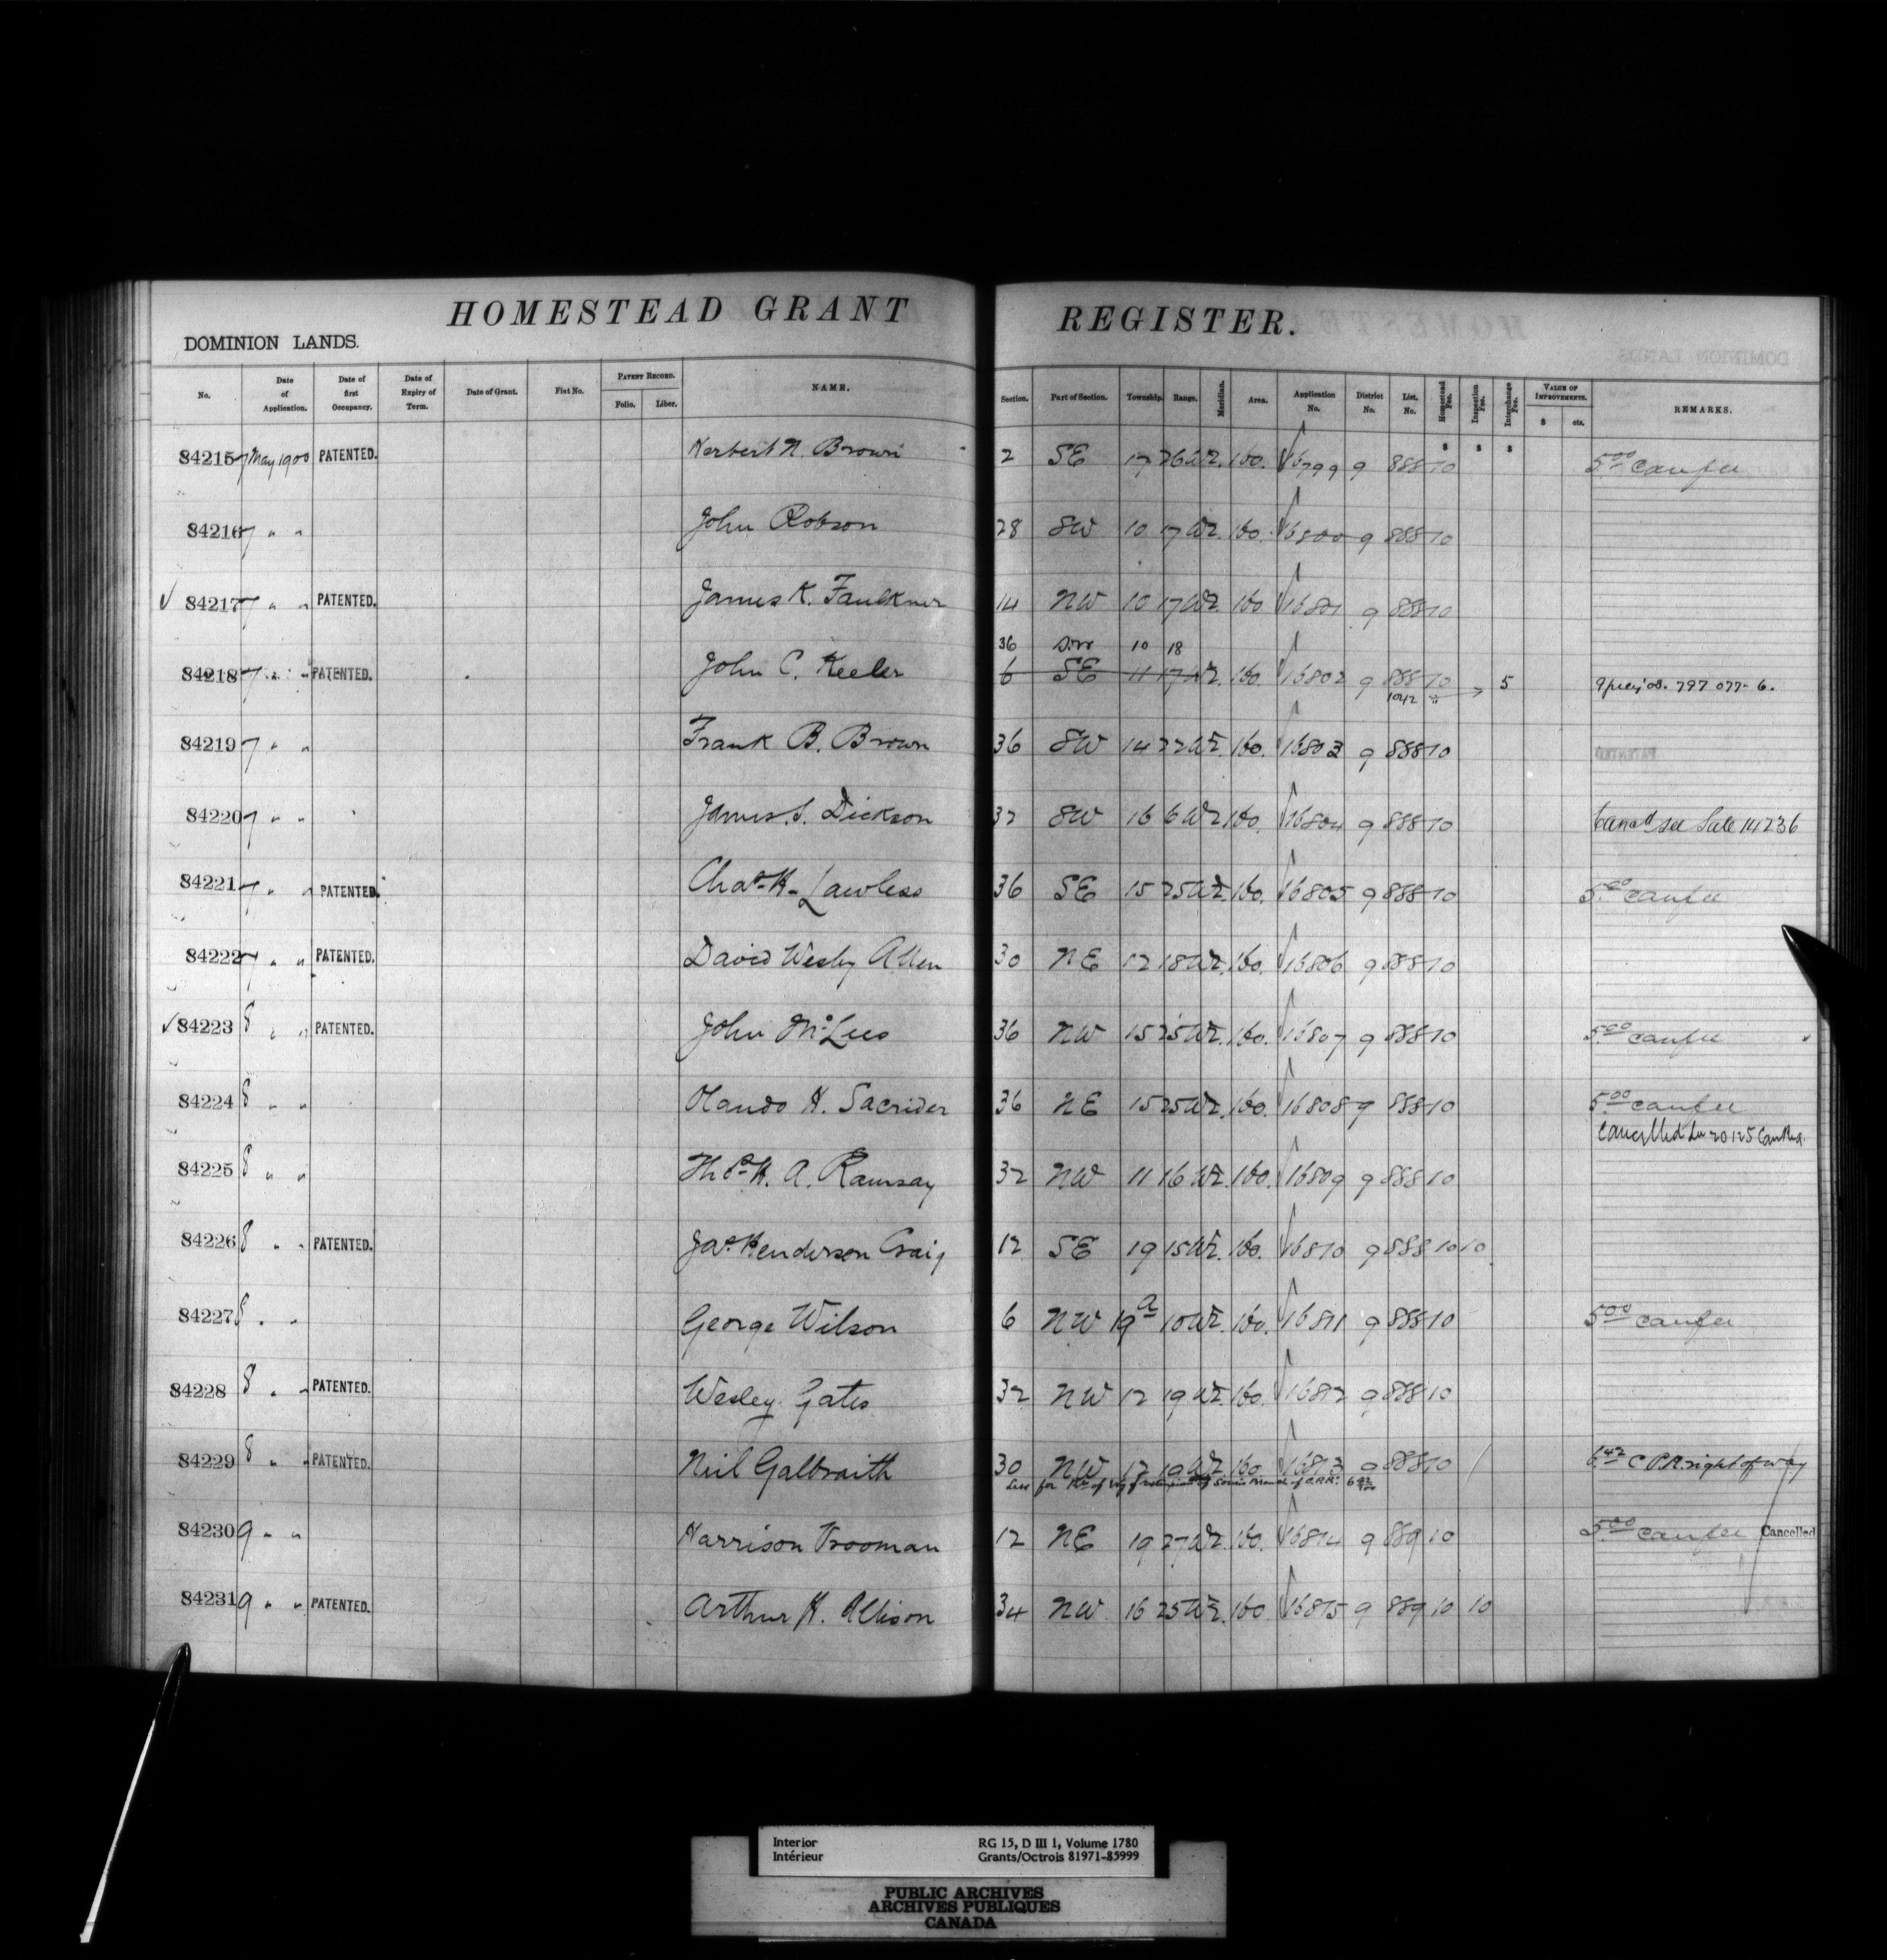 HOMESTEAD GRANT REGISTER.
DOMINION LANDS.
No. Date of Application. Date of first Occupancy. Date of Expiry of Term. Date of Grant. Fiat No. PATENT RECORD. Folio. Liber. NAME. Section. Part of Section. Township. Range. Meridian. Area. Application No. District No. List. No. Homestead Fee. Inspection Fee. Interchange Fee. VALUE OF IMPROVEMENTS. $ cts. REMARKS.
$ $ $
84215 7 May 1900 PATENTED. Herbert N. Brown 2 SE 17 26 W2. 160. 16799 9 888 10 5.00 can fee
84216 7 " " John Robson 28 SW 10 17 W2. 160. 16800 9 888 10
84217 7 " " PATENTED. James K. Faulkner 14 NW 10 17 W2 160 16801 9 888 10
36 S.W 10 18
84218 7 " " PATENTED. John C. Keeler 6 SE 11 17 W2. 160. 16802 9 888 10 5 797 077- 6.
1042
84219 7 " " Frank B. Brown 36 SW 14 22 W2. 160. 16803 9 888 10
84220 7 " " James. S. Dickson 32 SW 16 6 W2 160. 16804 9 888 10 Cancd see Sale 14236
84221 7 " " PATENTED. Chas. H. Lawless 36 SE 15 25 W2. 160. 16805 9 888 10 5.00 can fee
84222 7 " " PATENTED. David Wesley Allen 30 NE 12 18 W2. 160. 16806 9 888 10
84223 8 " " PATENTED. John McLees 36 NW 15 25 W2. 160. 16807 9 888 10 5.00 can fee
84224 8 " " Olando H. Sacrider 36 NE 15 25 W2. 160. 16808 9 888 10 5.00 can fee
Cancelled 20125
84225 8 " " Thos. H. A. Ramsay 32 NW 11 16 W2. 160. 16809 9 888 10
84226 8 " " PATENTED. Jas. Henderson Craig 12 SE 19 15 W2. 160. 16810 9 888 10 10
84227 8 " " George Wilson 6 NW 19a 10 W2. 160. 16811 9 888 10 5.00 can fee
84228 8 " " PATENTED. Wesley Gates 32 NW 12 19 W2. 160. 16812 9 888 10
84229 8 " " PATENTED. Neil Galbraith 30 NW 12 19 W2 160. 16813 9 888 10 6.42 C P.R. right of way
Less for Rt of Way of Souris Branch of C.P.R. 6 42/100
84230 9 " " Harrison Vrooman 12 NE 19 27 W2. 160. 16814 9 889 10 5.00 can fee Cancelled
84231 9 " " PATENTED. Arthur H. Allison 34 NW 16 25 W2. 160 16815 9 889 10 10
Interior RG 15, D III 1, Volume 1780
Intérieur Grants/Octrois 81971-85999
PUBLIC ARCHIVES
ARCHIVES PUBLIQUES
CANADA